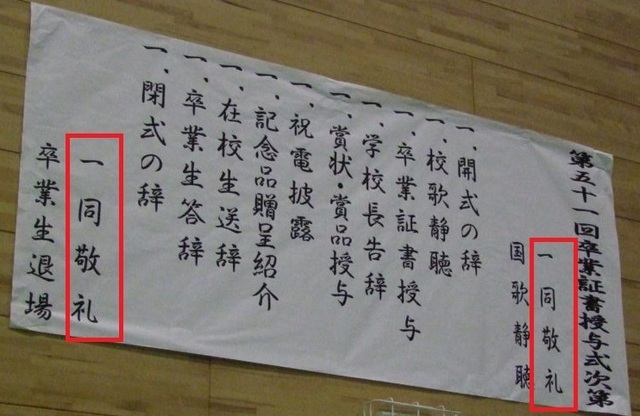 第五十一回卒業証書授与式次第
一同敬礼
国歌静聴
一、開式の辞
一、校歌静聴
一、卒業証書授与
一、学校長告辞
一、賞状・賞品授与
一、祝電披露
一、記念品贈呈紹介
一、在校生送辞
一、卒業生答辞
一、閉式の辞
一同敬礼
卒業生退場